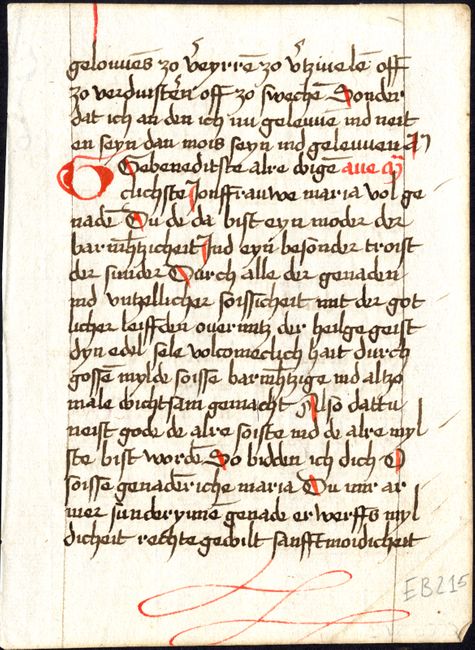 gelouues zo v̓eyrrē zo v̓tzwuelē off
zo verduistern̄ off zo swechē Sonder
dat ich an den ich nu geleuue ind neit
en seyn dan mois seyn ind geleuuen A
O Gebeneditste alre doigē aue m̄
clichste Jonffrauwe maria vol ge
nadē Du de da bist eyn moder der
barmh̓tzicheit Ind eyn̄ besonder troist
der sunder Durch alle der genaden
ind vntzellicher soissicheit mit der got
licher leiffden ouermitz der heilge geist
dyn edel sele volcomeclich hait durch
gossē mylde soisse barmh̓tzige ind altzo
male doichtsam gemacht Also dattu
neist gode de alre soiste ind de alre myl
ste bist wordē So bidden ich dich O
soisse genadenriche maria Du mir ar
mer sunderynnē genade erwerffs myl
dicheit rechte gedoilt sanfftmoidicheit
EB215